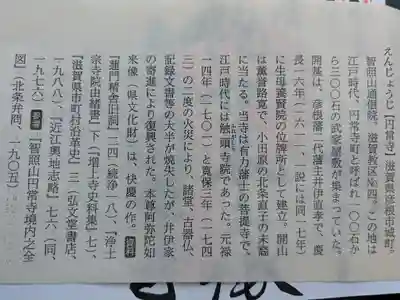 えんじょうじ【円常寺】滋賀県彦根市城町。
智照山道恒院。滋賀教区№四。この地は
江戸時代、円常寺町と呼ばれ一〇〇石か
ら三〇〇石の武家屋敷が集まっていた。
開基は、彦根藩二代藩主井伊直孝で、慶
長一六年（一六一一、一説には同一七年）
に生母養賢院の位牌所として建立。開山
は薫誉路寛で、小田原の北条直子の末裔
に当たる。当寺は有力藩士の菩提寺で、
江戸時代には触頭寺院であった。元禄
一四年（一七〇一）と寛保三年（一七四
三）の二度の火災により、諸堂、古器仏、
記録文書等の大半が焼失したが、井伊家
の寄進により復興された。本尊阿弥陀如
来像（県文化財）は、快慶の作。【資料】
『蓮門精舎旧詞』一四（続浄一八）、『浄土
宗寺院由緒書』下（『増上寺史料集』七）、
『滋賀県市町村沿革史』三（弘文堂書店、
一九八八）、『近江輿地志略』七六（同、
一九七六）【参考】『智照山円常寺境内之全
図』（北条弁問、一九〇五）